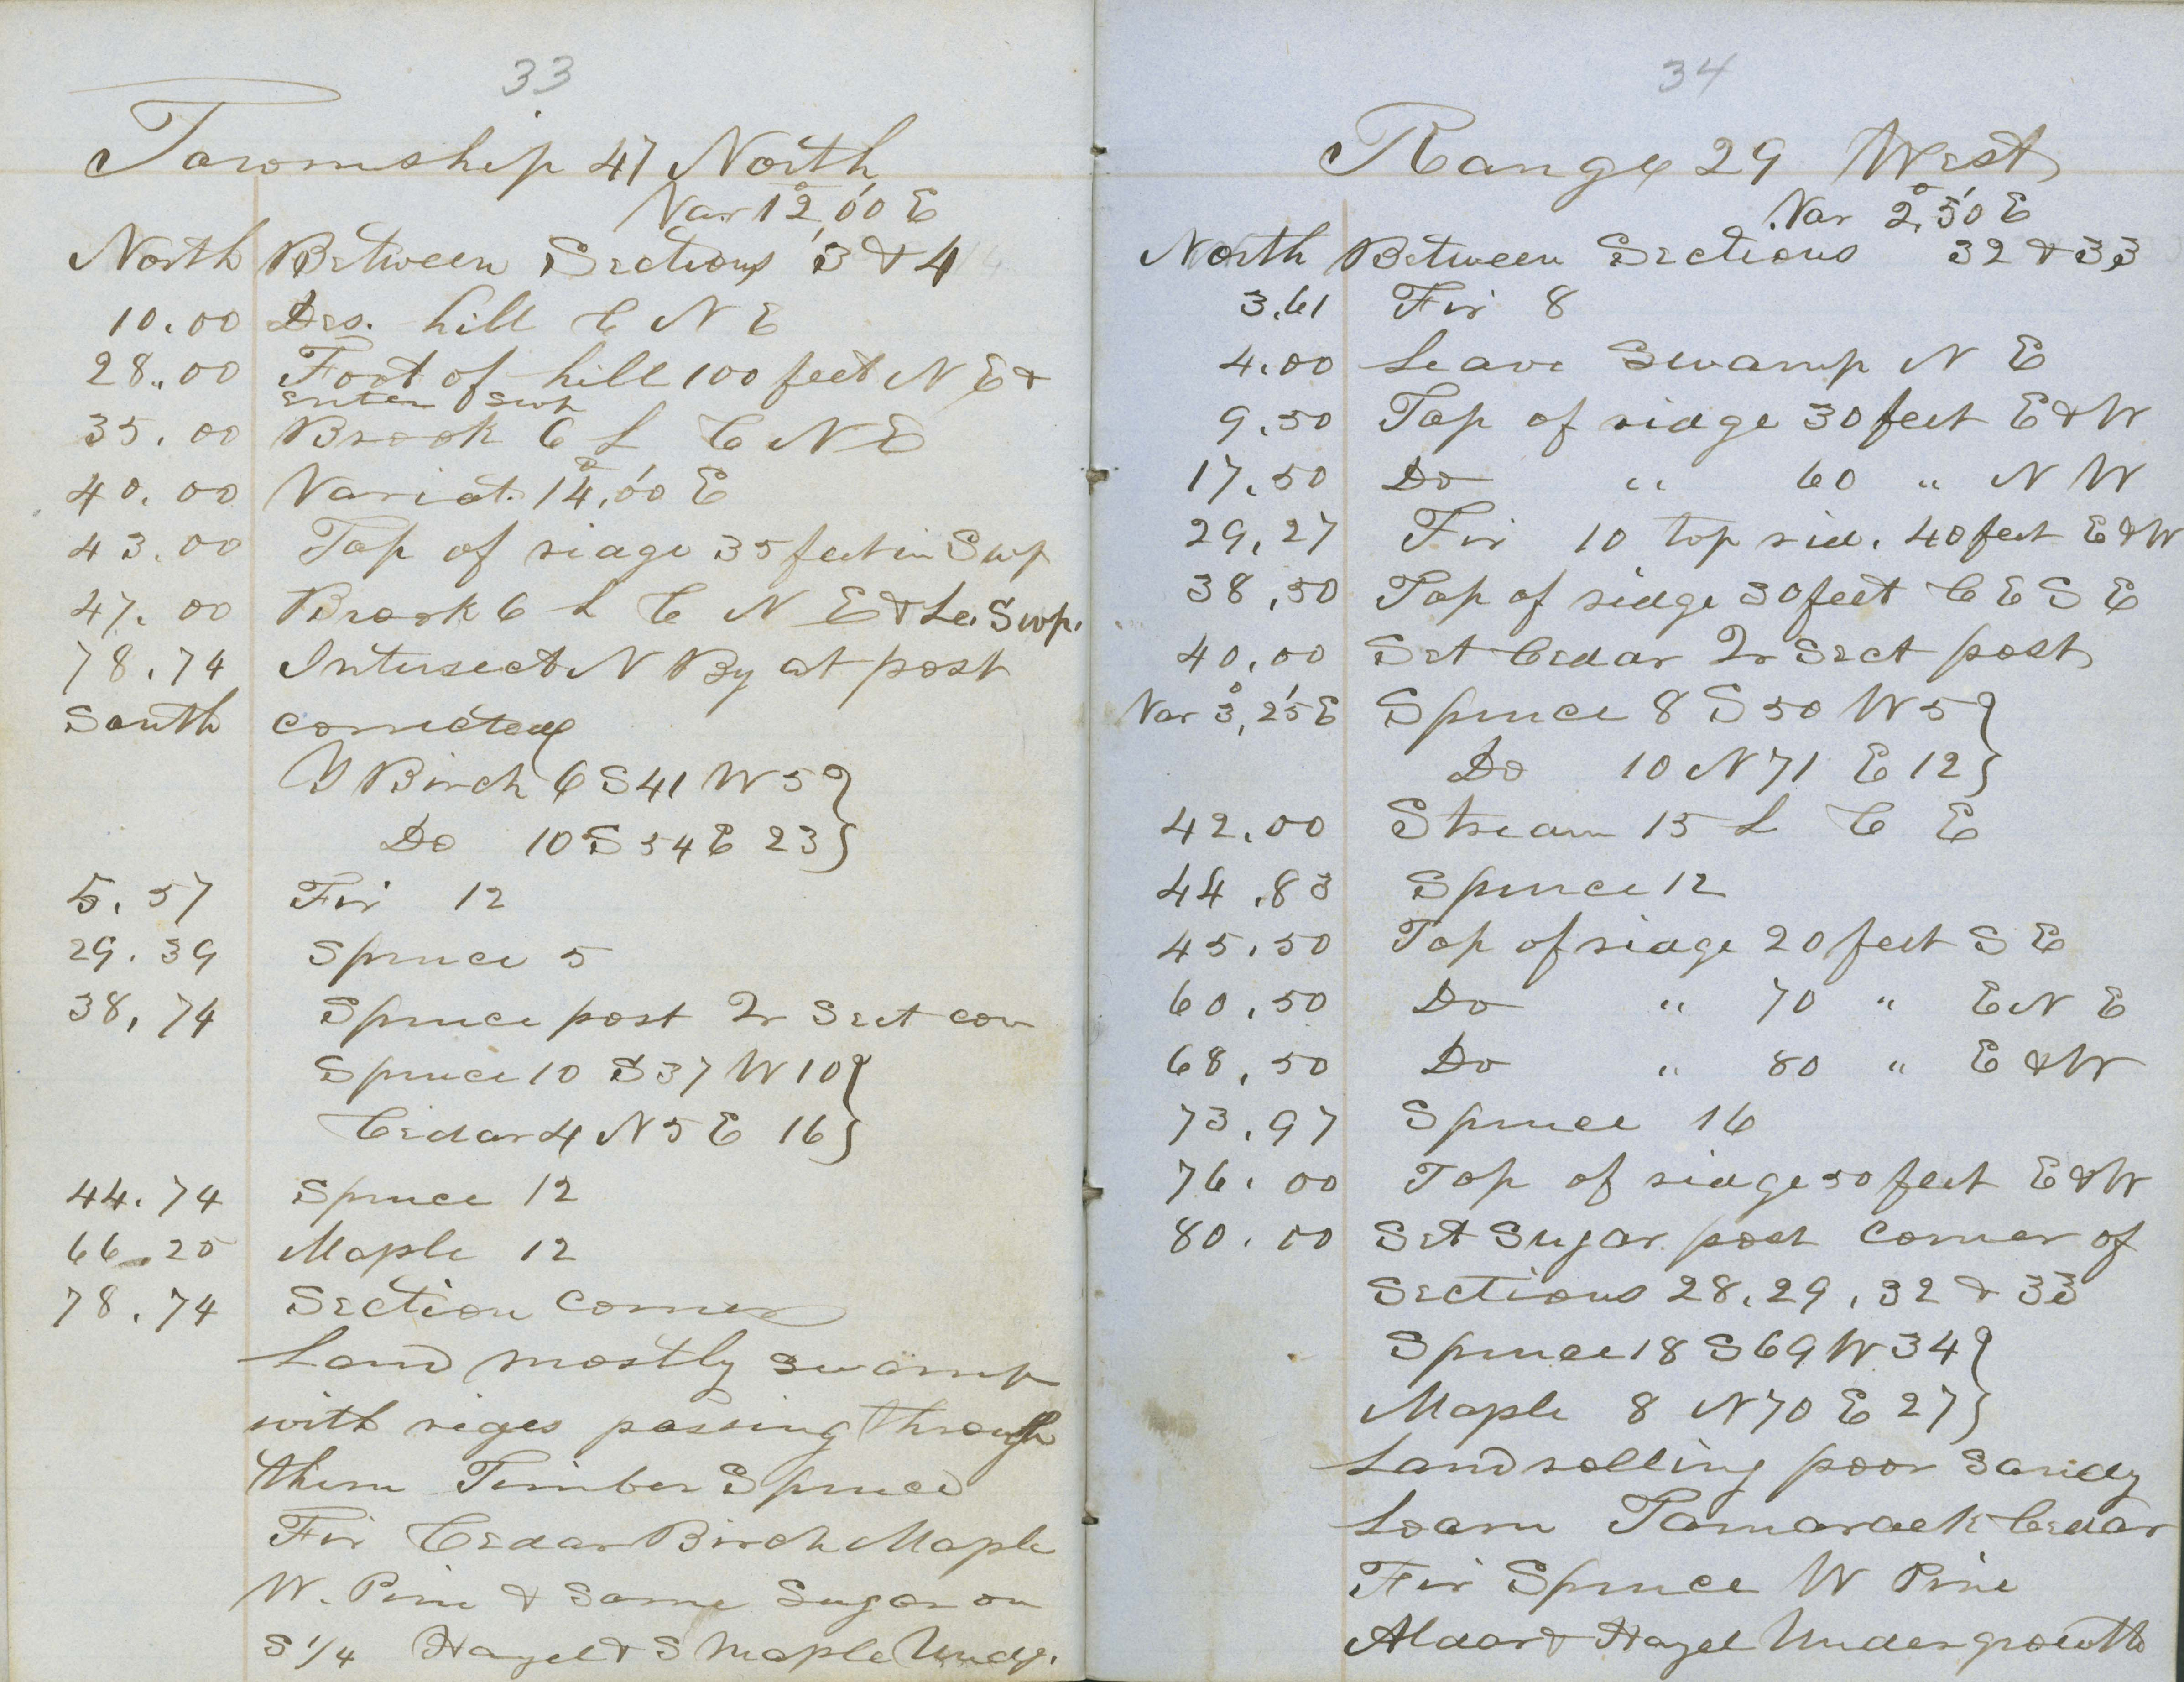 33
Township 47 North
Var 12°,00' E
North Between Sections 3 & 4
10.00 Des. hill C N E
28.00 Foot of hill 100 feet N E &
enter swp
35.00 Brook 6 L C N E
40.00 Variat. 14°,00' E
43.00 Top of ridge 35 feet in Swp
47.00 Brook 6 L C N E & Le. Swp.
78.74 Intersect N By at post
South corrected
Y Birch 6 S 41 W 5 }
Do 10 S 54 E 23 }
5.57 Fir 12
29.39 Spruce 5
38.74 Spruce post Qr Sect cor
Spruce 10 S 37 W 10 }
Cedar 4 N 5 E 16 }
44.74 Spruce 12
66.25 Maple 12
78.74 Section Corner
Land mostly swamp
with riges passing through
them Timber Spruce
Fir Cedar Birch Maple
W. Pine & Some Sugar on
S 1/4 Hazel & S Maple Undg.
34
Range 29 West
Var 2°,50' E
North Between Sections 32 & 33
3.61 Fir 8
4.00 Leave Swamp N E
9.50 Top of ridge 30 feet E & W
17.50 Do " 60 " N W
29.27 Fir 10 top rid. 40 feet E & W
38.50 Top of ridge 30 feet C E S E
40.00 Set Cedar Qr Sect post
Var 3°,25' E Spruce 8 S 50 W 5 }
Do 10 N 71 E 12 }
42.00 Stream 15 L C E
44.83 Spruce 12
45.50 Top of ridge 20 feet S E
60.50 Do " 70 " E N E
68.50 Do " 80 " E & W
73.97 Spruce 16
76.00 Top of ridge 50 feet E & W
80.00 Set Sugar post Corner of
Sections 28, 29, 32 & 33
Spruce 18 S 69 W 34 }
Maple 8 N 70 E 27 }
Land rolling poor Sandy
Loam Tamarack Cedar
Fir Spruce W Pine
Aldar & Hazel Undergrowth